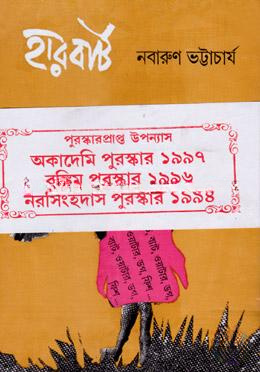 হারবার্ট
নবারুণ ভট্টাচার্য
পুরস্কারপ্রাপ্ত উপন্যাস
অকাদেমি পুরস্কার ১৯৯৭
বঙ্কিম পুরস্কার ১৯৯৬
নরসিংহদাস পুরস্কার ১৯৯৪
ব্যাট, ওয়াটার, ডগ, ফিশ